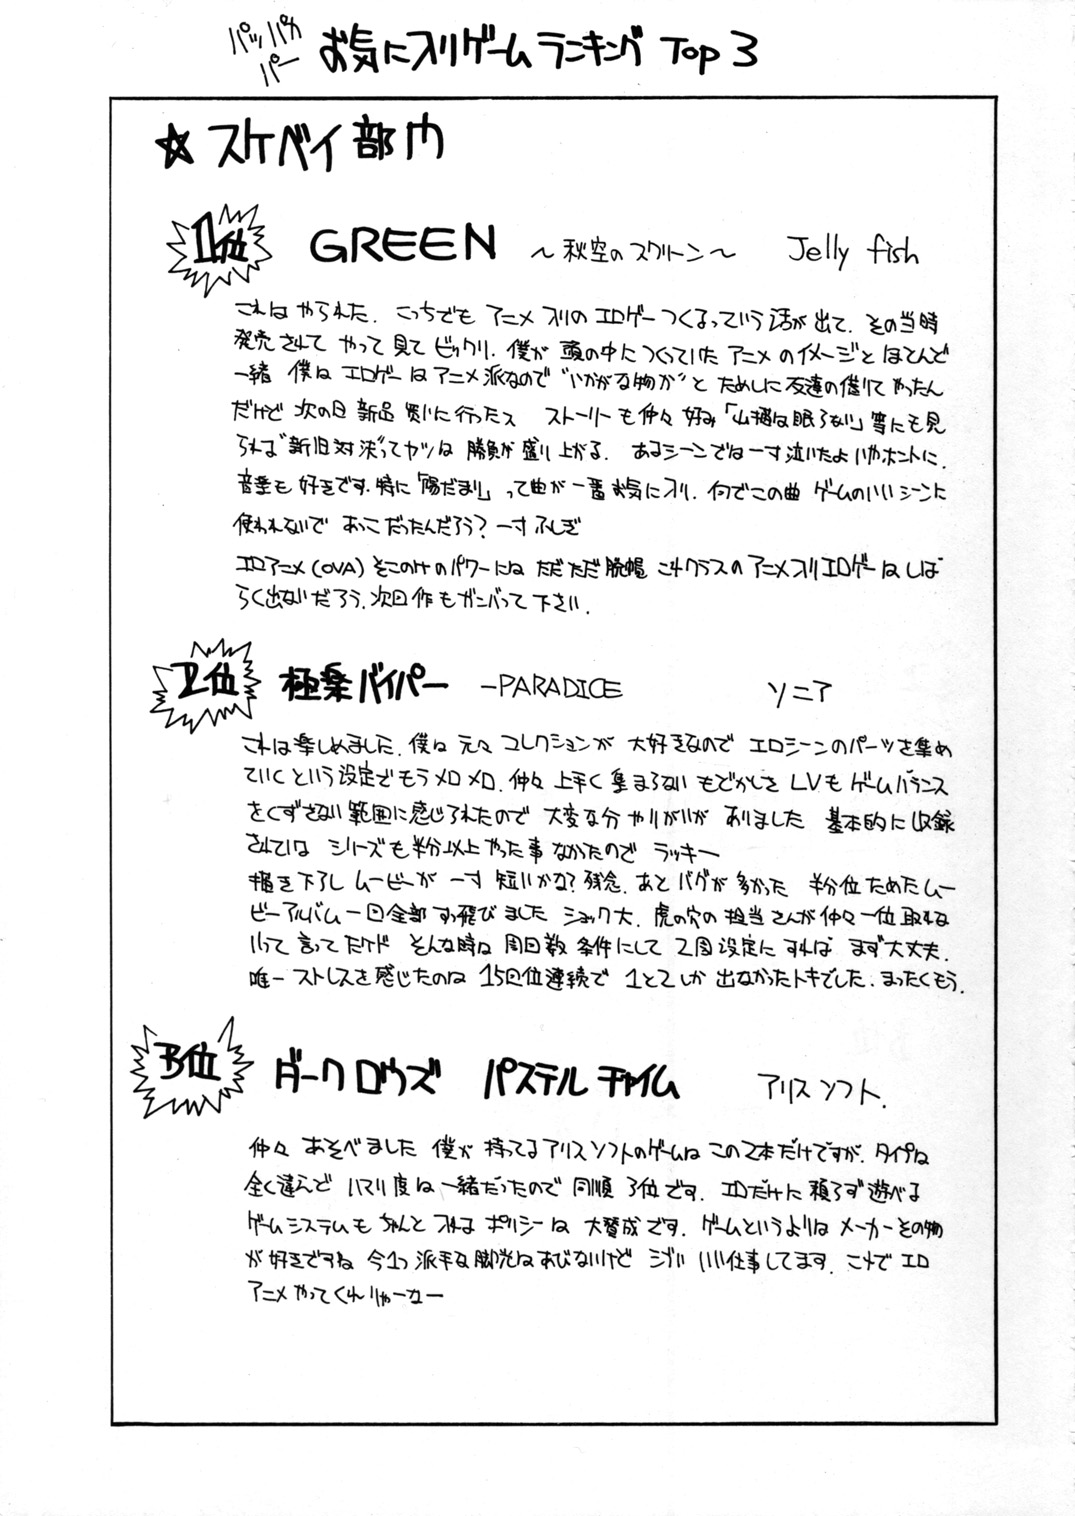 パッパカ
パー
お気に入リゲームランキング Top 3
☆ スケベイ部門
1位 GREEN ～秋空のスクリーン～ Jelly fish
これは やられた. こっちでも アニメ入りの エロゲーつくるっていう話が出て. その当時
発売されて やって見て ビックリ. 僕が 頭の中につくっていた アニメのイメージと ほとんど
一緒 僕は エロゲーは アニメ派なので "いかがな物か"と ためしに友達の借りて やったん
だけど 次の日 新品 買いに行ったス ストーリーも仲々 好み「山猫は眠らない」等にも見
られる"新旧対決"ってヤツは 勝負が盛り上がる. あるシーンでは一寸泣いたよ いやホントに.
音楽も 好きです. 特に「陽だまり」って曲が一番お気に入リ. 何でこの曲 ゲームのいいシーンに
使われないで おっこだったんだろう? 一寸ふしぎ
エロアニメ(OVA) そこのけのパワーには ただただ脱帽 これクラスのアニメ入リエロゲーは しば
らく出ないだろう. 次回作もガンバって下さい.
2位 極楽バイパー －PARADICE ソニア
これは楽しめました. 僕は 元々 コレクションが 大好きなので エロシーンのパーツを集め
ていくという設定でもうメロメロ. 仲々 上手く 集まらない もどかしさ LVも ゲームバランス
をくずさない範囲に感じられたので 大変な分 やりがいが ありました 基本的に 収録
されている シリーズも半分以上やった事 なかったので ラッキー
描き下ろし ムービーが 一寸 短いかな? 残念. あと バグが多かった 半分位ためたムー
ビーアルバム一回全部 すっ飛びました ショック大. 虎の穴の担当さんが仲々一位 取れな
いって 言ってたケド そんな時は 周回数 条件にして 2周設定に すれば まず大丈夫.
唯一 ストレスを感じたのは 15回位連続で 1と2しか 出なかったトキでした. まったくもう.
3位 ダークロウズ パステルチャイム アリスソフト.
仲々 あそべました 僕が 持ってる アリスソフトのゲームは この2本だけですが. タイプは
全く違んど ハマリ度は一緒だったので 同順 3位です. エロだけに 頼らず 遊べる
ゲームシステムも ちゃんと 入れる ポリシーは 大賛成です. ゲームというよりは メーカーその物
が好きですね 今1つ派手な脚光はあびないけど シブい いい仕事してます. これで エロ
アニメ やってくれりゃーなー